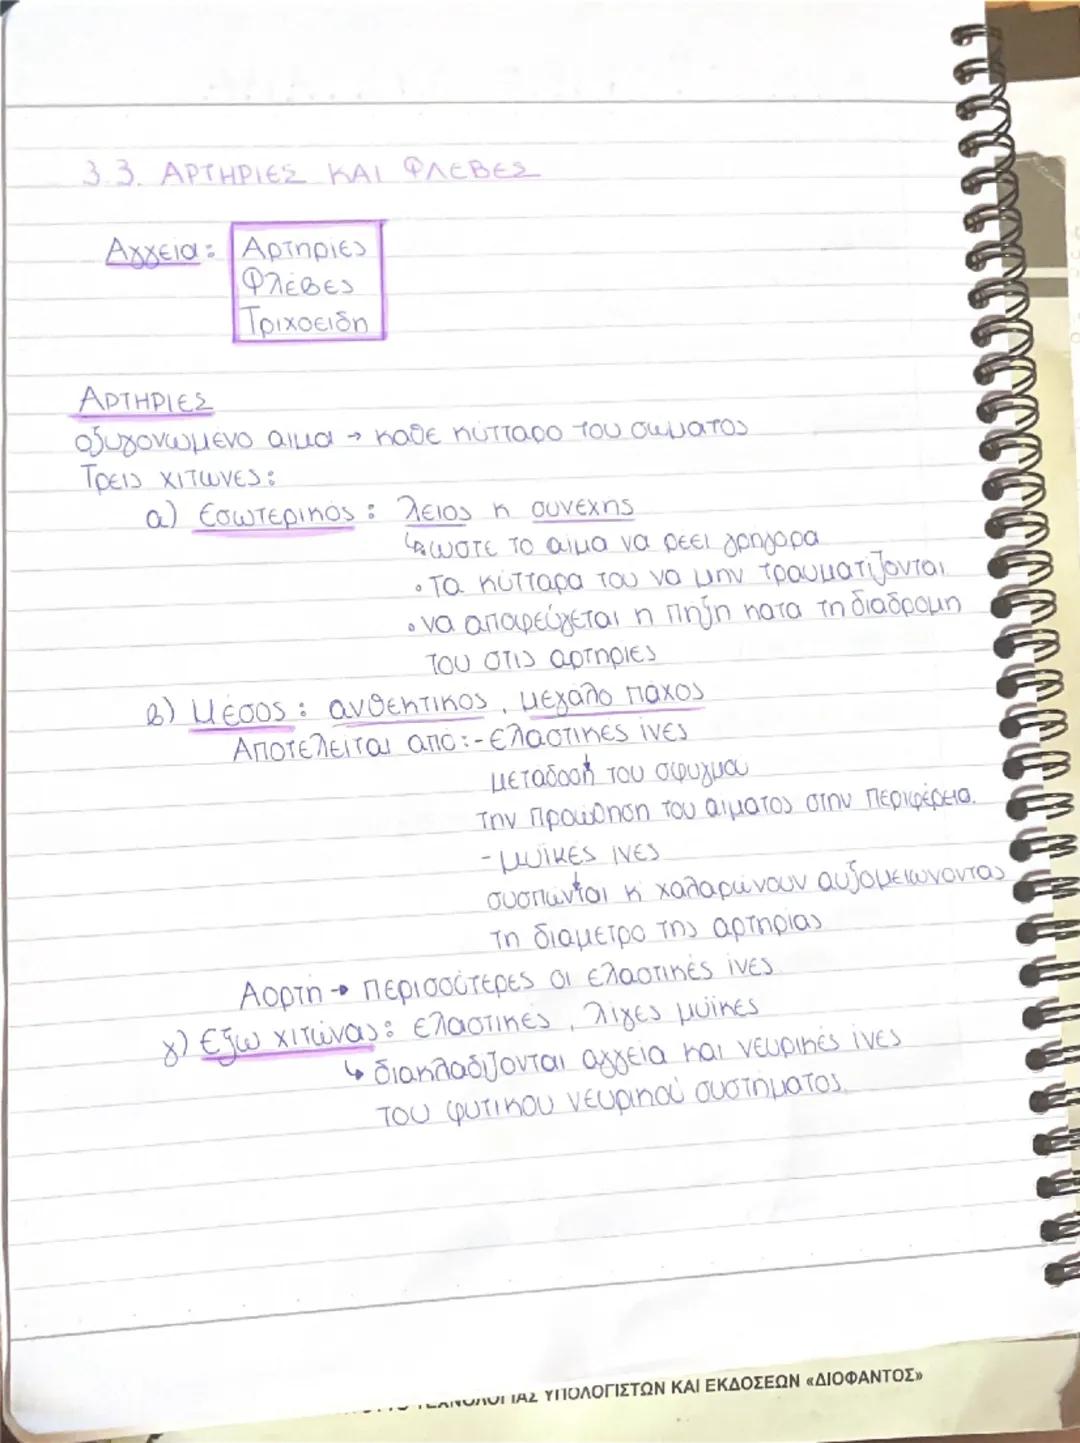 3.3. ΑΡΤΗΡΙΕΣ ΚΑΙ ΦΛΕΒΕΣ
Αγγεία: Αρτηρίες
Φλέβες
Τριχοειδη
ΑΡΤΗΡΙΕΣ
οξυγονωμένο αιμα → καθε κύτταρο του σωματος
Τρεις χιτωνες:
α) Εσωτερικός: λειος κ συνεχης
↳ • ωστε το αιμα να ρεει γρηγορα
• Τα κύτταρα του να μην τραυματίζονται
• να αποφεύγεται η πηξη κατα τη διαδρομη
του στις αρτηριες
β) Μέσος: ανθεκτικος, μεγαλο πάχος
Αποτελείται από: - Ελαστικες ίνες
μετάδοση του σφυγμου
την προώθηση του αιματος στην περιφέρεια.
- μυϊκές ινες
συσπώνται κ χαλαρώνουν αυξομειωνοντας
τη διαμετρο της αρτηρίας
Αορτη → περισσότερες οι ελαστικές ίνες
γ) Εξω χιτώνας: ελαστικές, λίγες μυϊκες
↳ διακλαδίζονται αγγεία και νευρικές ίνες
του φυτικου νευρικού συστηματος.
ΤΕΧΝΟΛΟΓΙΑΣ ΥΠΟΛΟΓΙΣΤΩΝ ΚΑΙ ΕΚΔΟΣΕΩΝ «ΔΙΟΦΑΝΤΟΣ»